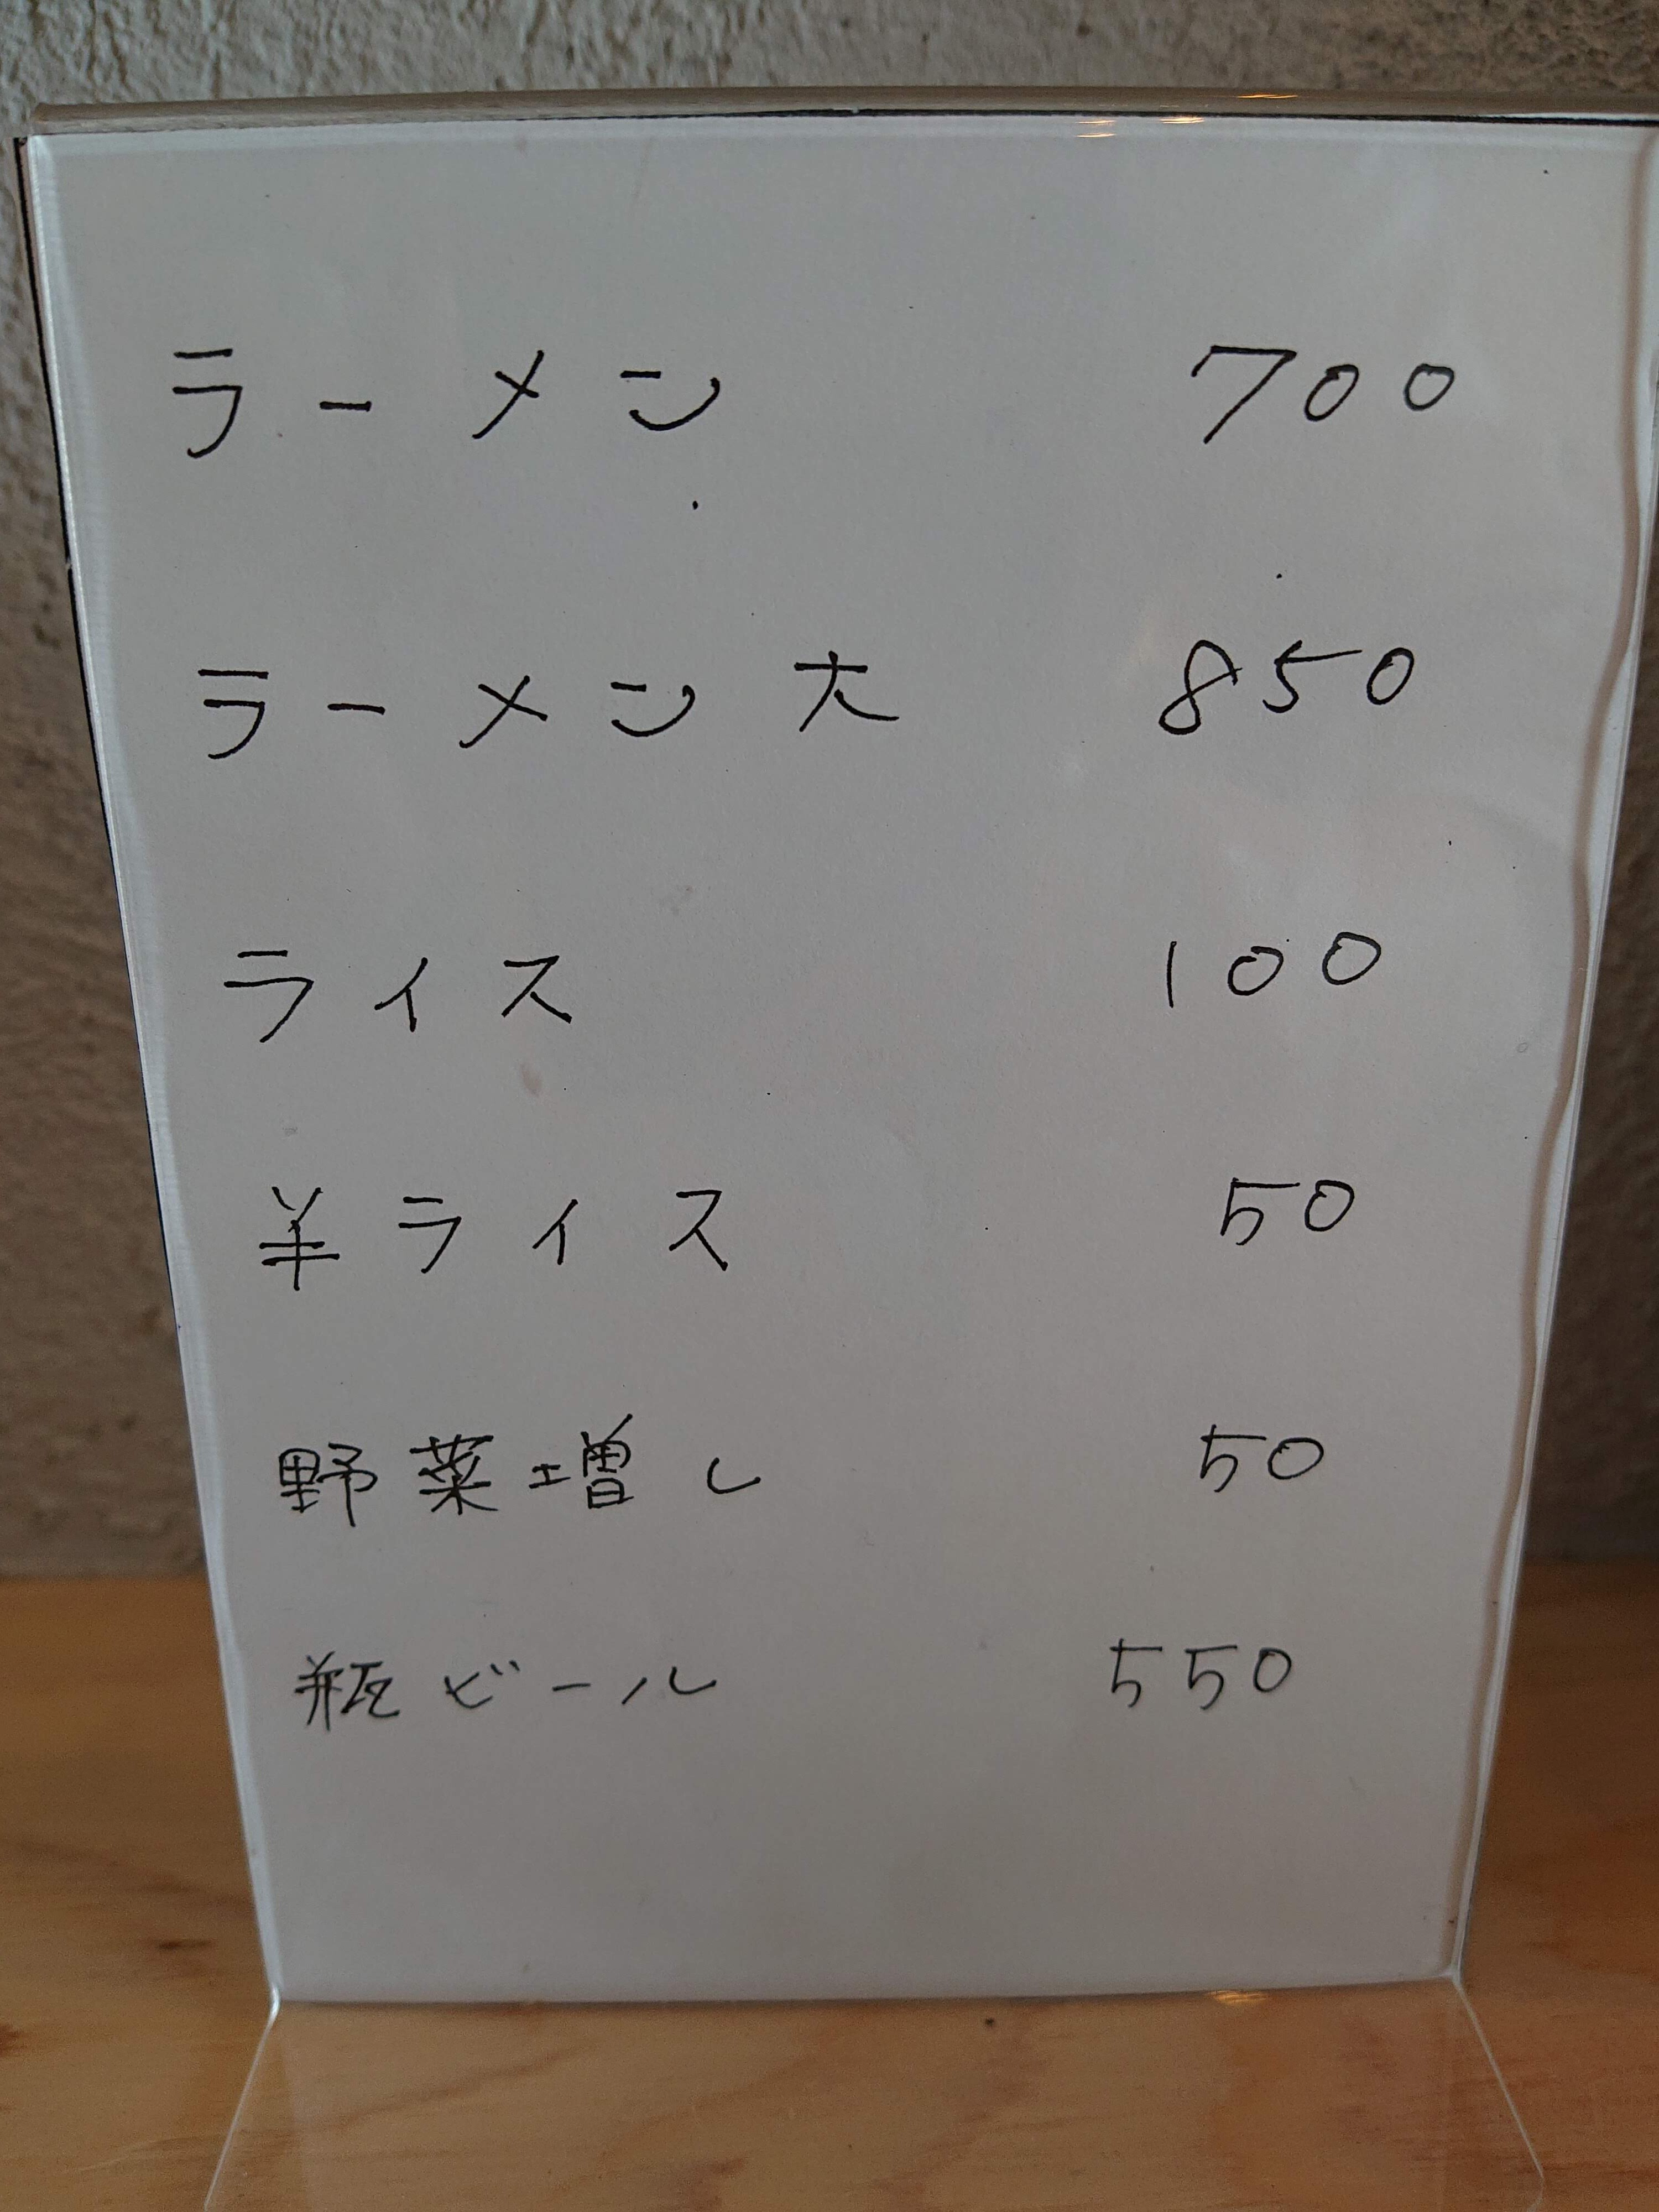 ラーメン 700
ラーメン大 850
ライス 100
半ライス 50
野菜増し 50
瓶ビール 550